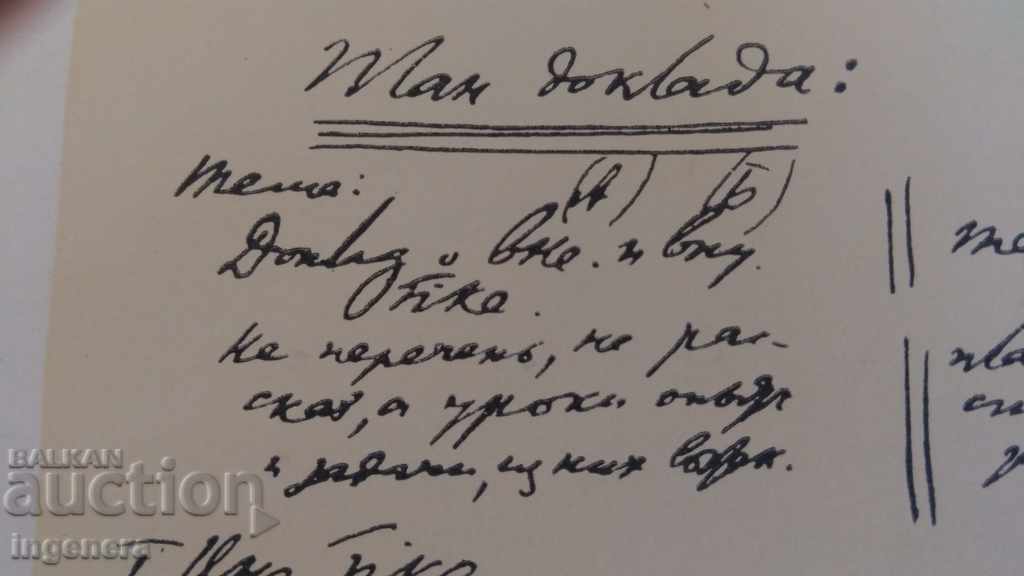 План доклада:
Тема: (А) (Б)
Доклад о вне. и вну.
тике.
Не перечень, не рас-
сказ, а уроки опыта
и задачи, из них
BALKAN
auction
ingenera